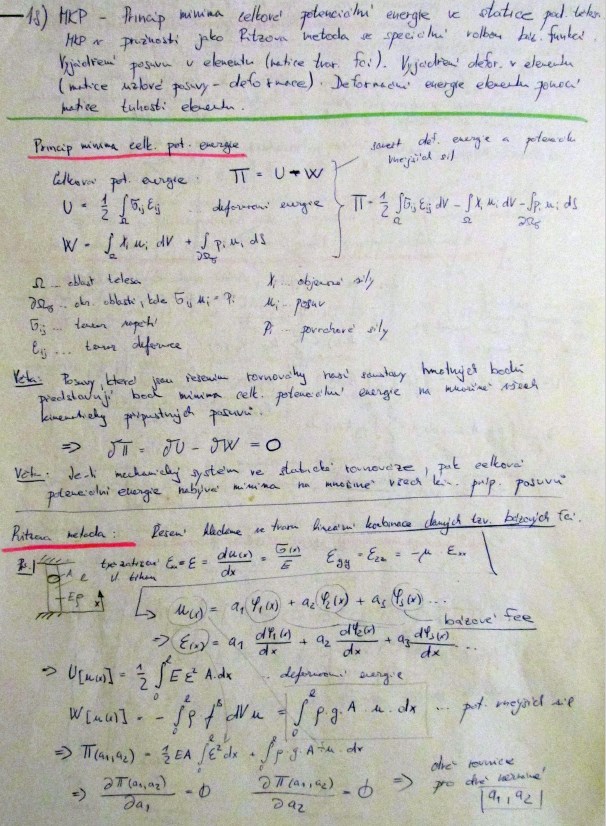 18) MKP - Princip minima celkové potenciální energie ve statice pod. těles.
MKP v pružnosti jako Ritzova metoda se speciální volbou báz. funkcí.
Vyjádření posuvů v elementu (matice tvar. fcí). Vyjádření defor. v elementu
(matice uzlové posuvy - deformace). Deformační energie elementu pomocí
matice tuhosti elementu.
Princip minima celk. pot. energie
součet def. energie a potenciálu
vnějších sil
Celková pot. energie: Π = U - W
U = 1/2 ∫_Ω σij εij .. deformační energie
Π = 1/2 ∫_Ω σij εij dV - ∫_Ω Xi ui dV - ∫_∂Ωσ pi ui dS
W = ∫_Ω Xi ui dV + ∫_∂Ωσ pi ui dS
Ω ... oblast tělesa
Xi .. objemové síly
∂Ωσ .. oblasti, kde σij ni = Pi
ui .. posuv
σij ... tenzor napětí
Pi .. povrchové síly
εij ... tenzor deformace
Věta: Posuvy, které jsou řešením rovnováhy soustavy hmotných bodů
představují bod minima celk. potenciální energie na množině všech
kinematicky přípustných posuvů.
⇒ ∂Π = ∂U - ∂W = 0
Věta: Je-li mechanický systém ve statické rovnováze, pak celková
potenciální energie nabývá minima na množině všech kin. příp. posuvů
Ritzova metoda: Řešení hledáme ve tvaru lineární kombinace daných tzv. bázových fcí.
Př. εxx = ε = du(x)/dx = σ(x)/E εyy = εzz = -μ εxx
A l
Eρ x
u(x) = a1 φ1(x) + a2 φ2(x) + a3 φ3(x) ...
bázové fce
⇒ ε(x) = a1 dφ1(x)/dx + a2 dφ2(x)/dx + a3 dφ3(x)/dx ...
⇒ U[u(x)] = 1/2 ∫_0^l E ε² A.dx .. deformační energie
W[u(x)] = - ∫_0^l ρ f^B dV u = ∫_0^l ρ.g.A.u.dx ... pot. vnějších sil
⇒ Π(a1,a2) = 1/2 EA ∫_0^l ε² dx + ∫_0^l ρ.g.A.u.dx
⇒ ∂Π(a1,a2)/∂a1 = 0 ∂Π(a1,a2)/∂a2 = 0 ⇒ dvě rovnice
pro dvě neznámé
|a1, a2|